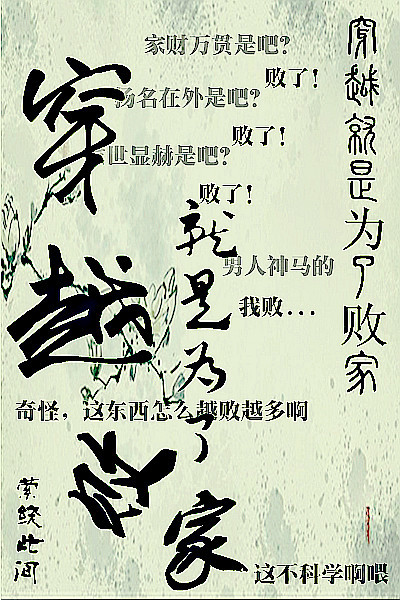 家财万贯是吧？
败了！
扬名在外是吧？
败了！
世显赫是吧？
败了！
男人神马的
我败...
奇怪，这东西怎么越败越多啊
这不科学啊喂
穿越就是为了败家
穿越就是为了败家
萦绕此间